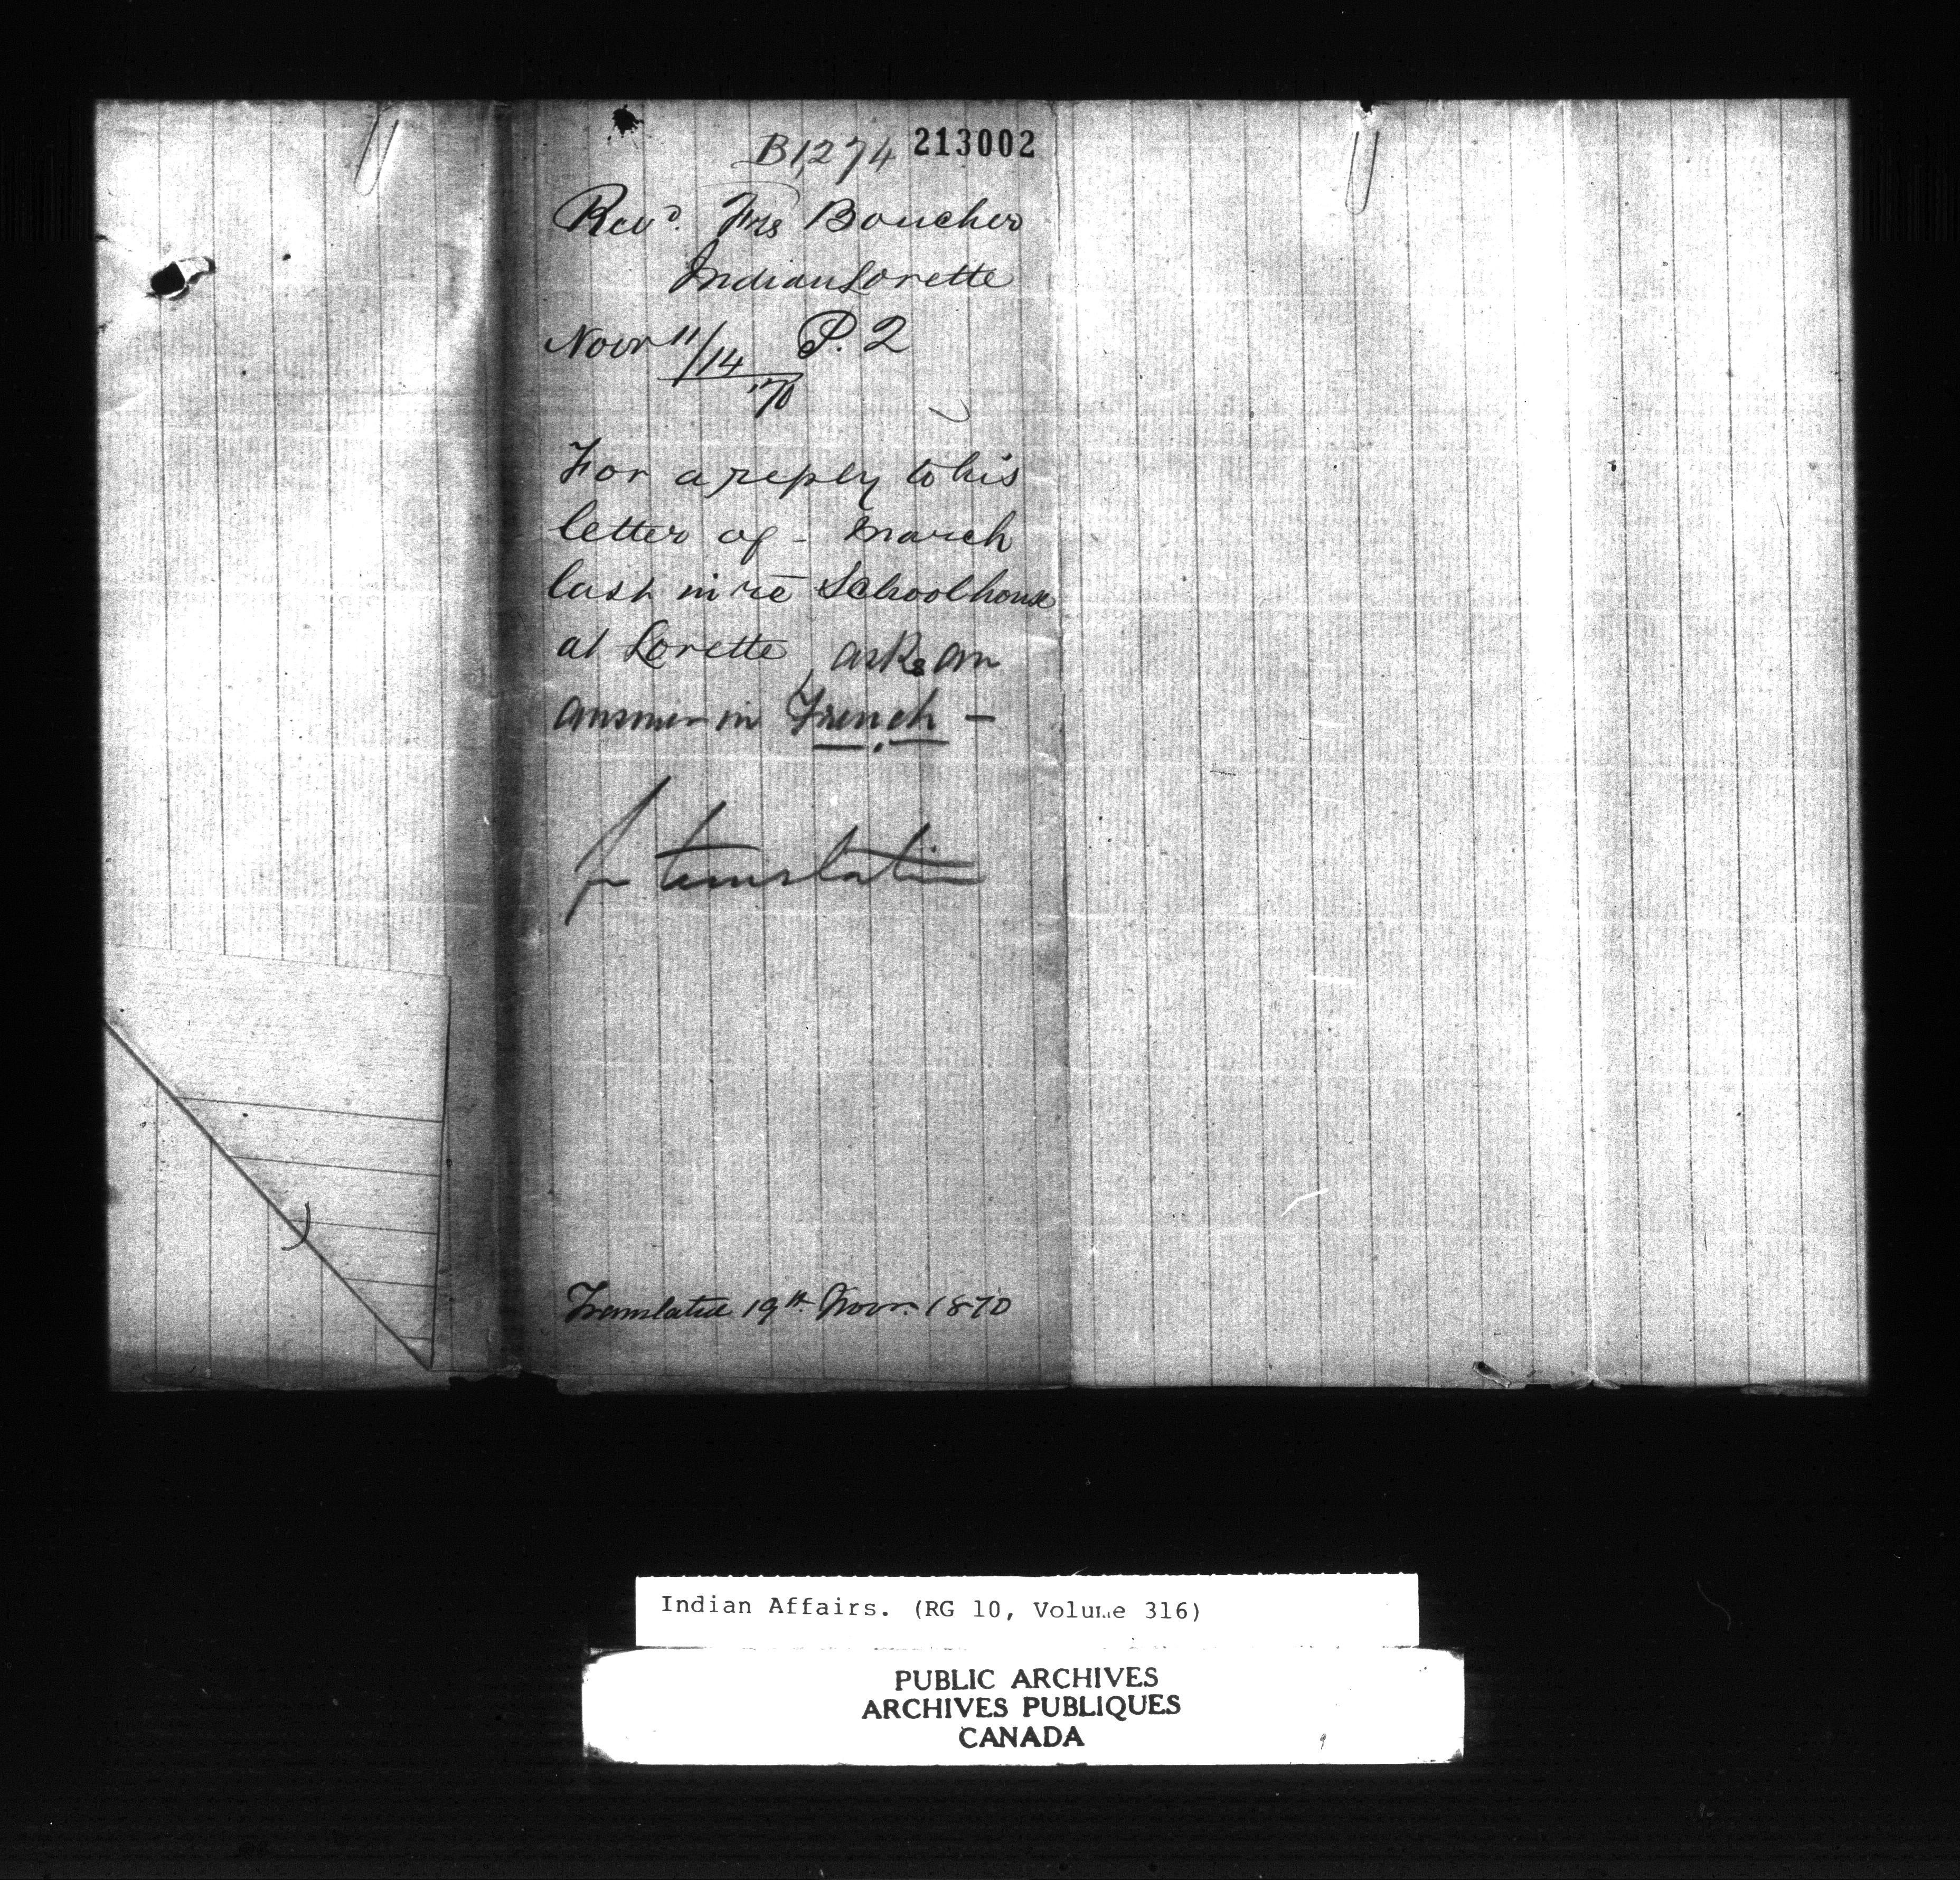 B1,274 213002
Revd. Frs Boucher
Indian Lorette
Novr 11/14 P. 2
'70
For a reply to his
letter of - March
last in re Schoolhouse
at Lorette, asks an
answer in French -
for translation
Translated 19th Novr. 1870
Indian Affairs. (RG 10, Volume 316)
PUBLIC ARCHIVES
ARCHIVES PUBLIQUES
CANADA